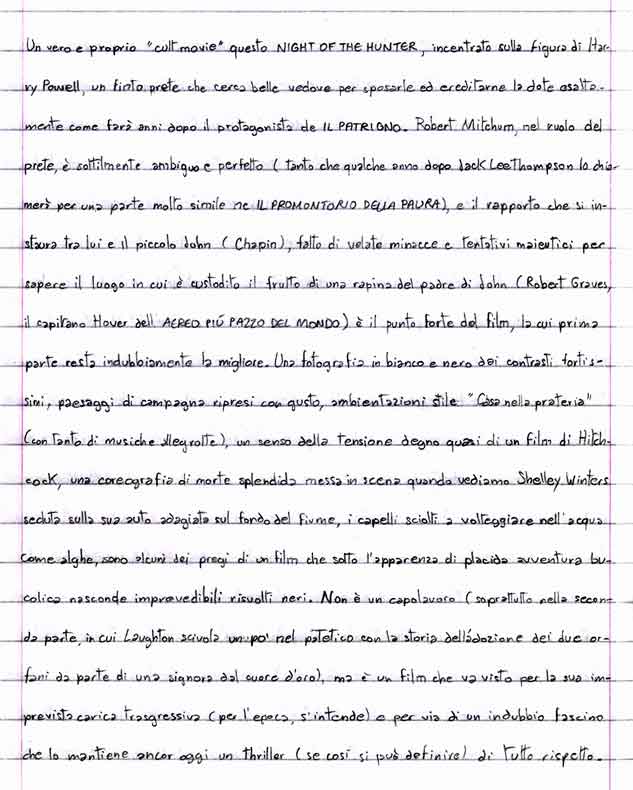 Un vero e proprio "cult movie" questo NIGHT OF THE HUNTER, incentrato sulla figura di Har-
ry Powell, un finto prete che cerca belle vedove per sposarle ed ereditarne la dote esatta-
mente come farà anni dopo il protagonista de IL PATRIGNO. Robert Mitchum, nel ruolo del
prete, è sottilmente ambiguo e perfetto (tanto che qualche anno dopo Jack Lee Thompson lo chia-
merà per una parte molto simile ne IL PROMONTORIO DELLA PAURA), e il rapporto che si in-
staura tra lui e il piccolo John (Chapin), fatto di velate minacce e tentativi maieutici per
sapere il luogo in cui è custodito il frutto di una rapina del padre di John (Robert Graves,
il capitano Hover dell'AEREO PIÚ PAZZO DEL MONDO) è il punto forte del film, la cui prima
parte resta indubbiamente la migliore. Una fotografia in bianco e nero dei contrasti fortis-
simi, paesaggi di campagna ripresi con gusto, ambientazioni stile "Casa nella prateria"
(con tanto di musiche allegrotte), un senso della tensione degno quasi di un film di Hitch-
cock, una coreografia di morte splendida messa in scena quando vediamo Shelley Winters
seduta sulla sua auto adagiata sul fondo del fiume, i capelli sciolti a volteggiare nell'acqua
come alghe, sono alcuni dei pregi di un film che sotto l'apparenza di placida avventura bu-
colica nasconde imprevedibili risvolti neri. Non è un capolavoro (soprattutto nella secon-
da parte, in cui Laughton scivola un po' nel patetico con la storia dell'adozione dei due or-
fani da parte di una signora dal cuore d'oro), ma è un film che va visto per la sua im-
prevista carica trasgressiva (per l'epoca, s'intende) e per via di un indubbio fascino
che lo mantiene ancor oggi un thriller (se così si può definire) di tutto rispetto.